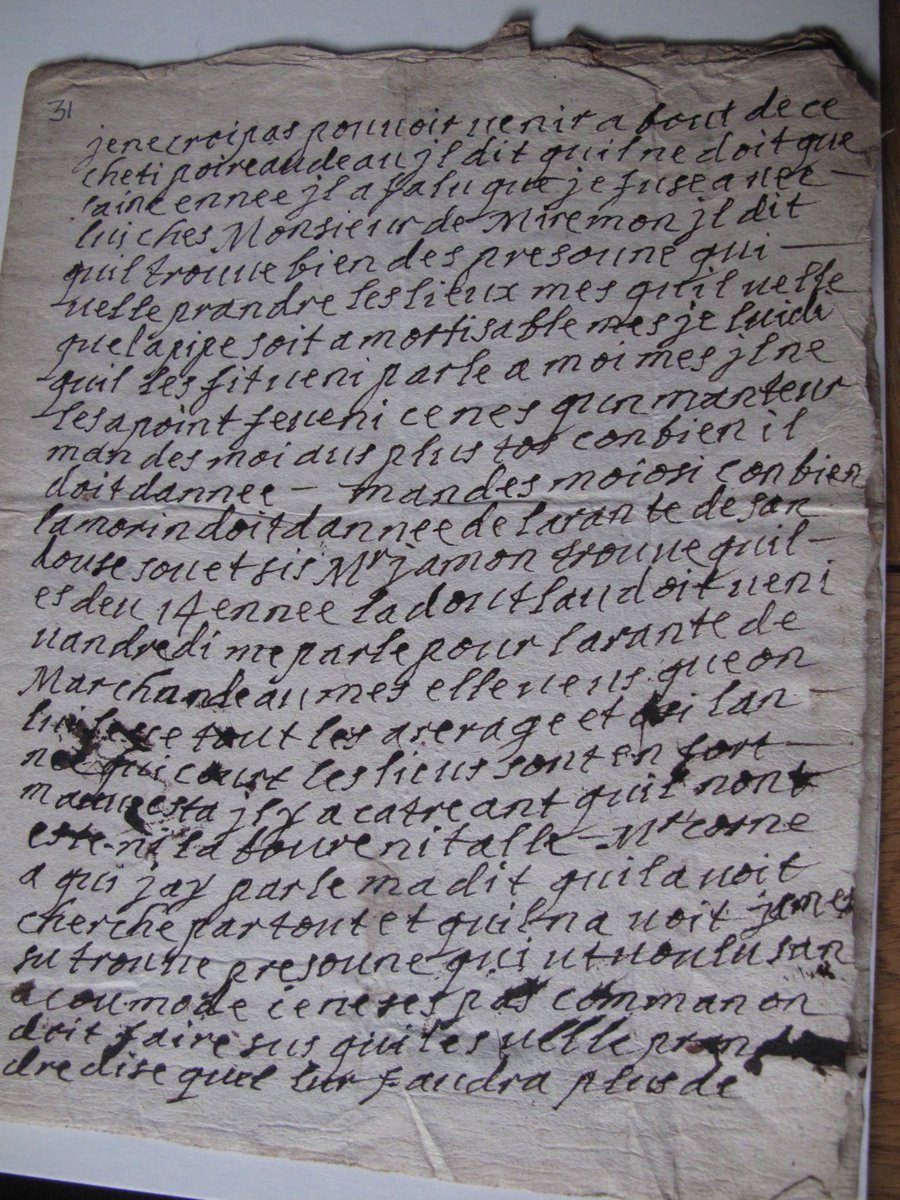 31
jene croi pas pouuoir uenir a bout de ce
cheti poireaudeau jl dit quil ne doit que
ennee jl a falu que je fuse auec
lui ches Monsieur de Miremon jl dit
quil trouue bien des presoune qui
uelle prandre les lieux mes quil uelle
que la pipe soit amortisable mes je lui di
quil les fit ueni parle a moi mes jl ne
les a point feueni ce nes qun manteur
mandes moi aus plus tos conbien il
doit dannee – mandes moi osi conbien
lamorin doit dannee de la rante de san
douse sou et sis Mr jamon trouue quil
es deu 14 ennee la doit ueni
uandredi me parle pour la rante de
Marchandeau mes elle ueus que on
lui lesse tout les arerage et osi lan
nee qui court les lieus sont en fort
mauues ta jl y a catre ant quil nont
este ni laboure ni talle – Mr corne
a qui jay parle ma dit quil auoit
cherche par tout et quil na uoit james
su trouue presoune qui ut uoulu san
acoumode je ne ses pas comman on
doit faire sus qui les uelle pran
dre dise quil lur faudra plus de